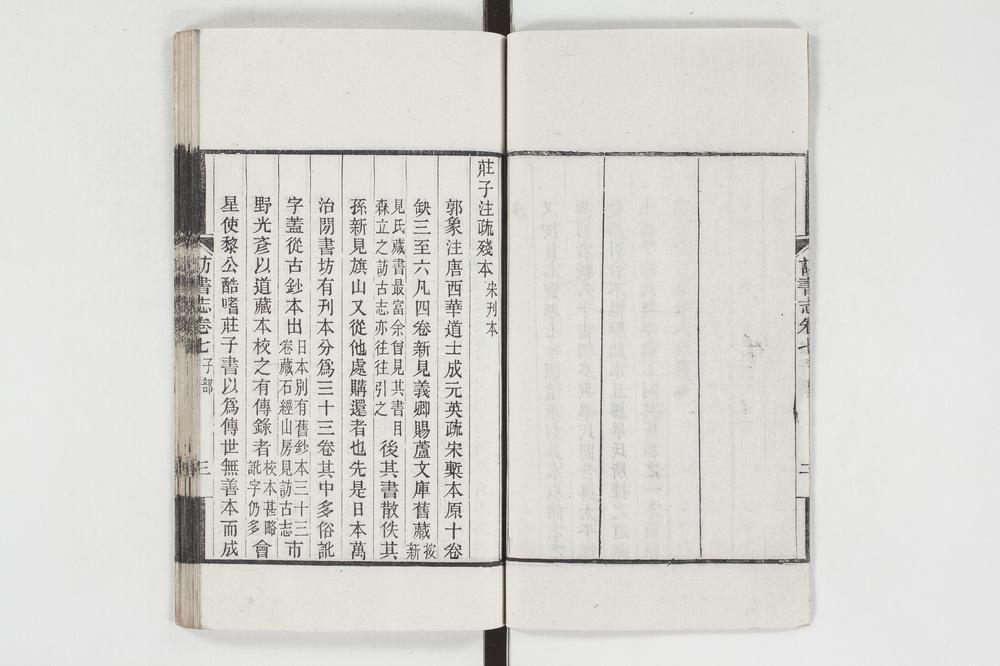 莊子注疏殘本 宋刊本
郭象注唐西華道士成元英疏宋槧本原十卷
缺三至六凡四卷新見義卿賜蘆文庫舊藏按新
見氏藏書最富余曾見其書目
森立之訪古志亦往往引之
後其書散佚其
孫新見旗山又從他處購還者也先是日本萬
治閒書坊有刊本分爲三十三卷其中多俗訛
字蓋從古鈔本出
日本別有舊鈔本三十三
卷藏石經山房見訪古志
市
野光彥以道藏本校之有傳錄者
校本甚略
訛字仍多
會
星使黎公酷嗜莊子書以爲傳世無善本而成
訪書志卷七 子部
三
訪書志卷七
二